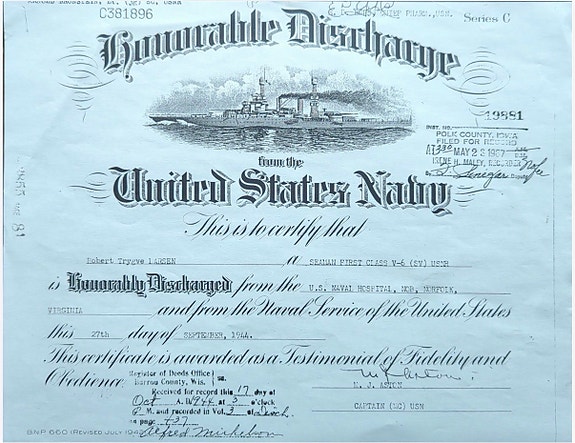 C381896
Series C
Honorable Discharge
19881
INST. NO.
POLK COUNTY, IOWA
FILED FOR RECORD
AT 3:30 MAY 23 1967
IRENE H. MALEY, RECORDER
from the
United States Navy
This is to certify that
Robert Trygve LARSEN a SEAMAN FIRST CLASS V-6 (SV) USNR
is Honorably Discharged from the U.S. NAVAL HOSPITAL, NOB, NORFOLK,
VIRGINIA and from the Naval Service of the United States
this 27th day of SEPTEMBER, 1944.
This certificate is awarded as a Testimonial of Fidelity and
Obedience.
Register of Deeds Office
Barron County, Wis. ss.
Received for record this 17 day of
Oct A.D. 1944 at 3 o'clock
P M. and recorded in Vol. 3 of Disch.
on page 437
Alfred Mickelson
M. J. ASTON
CAPTAIN (MC) USN